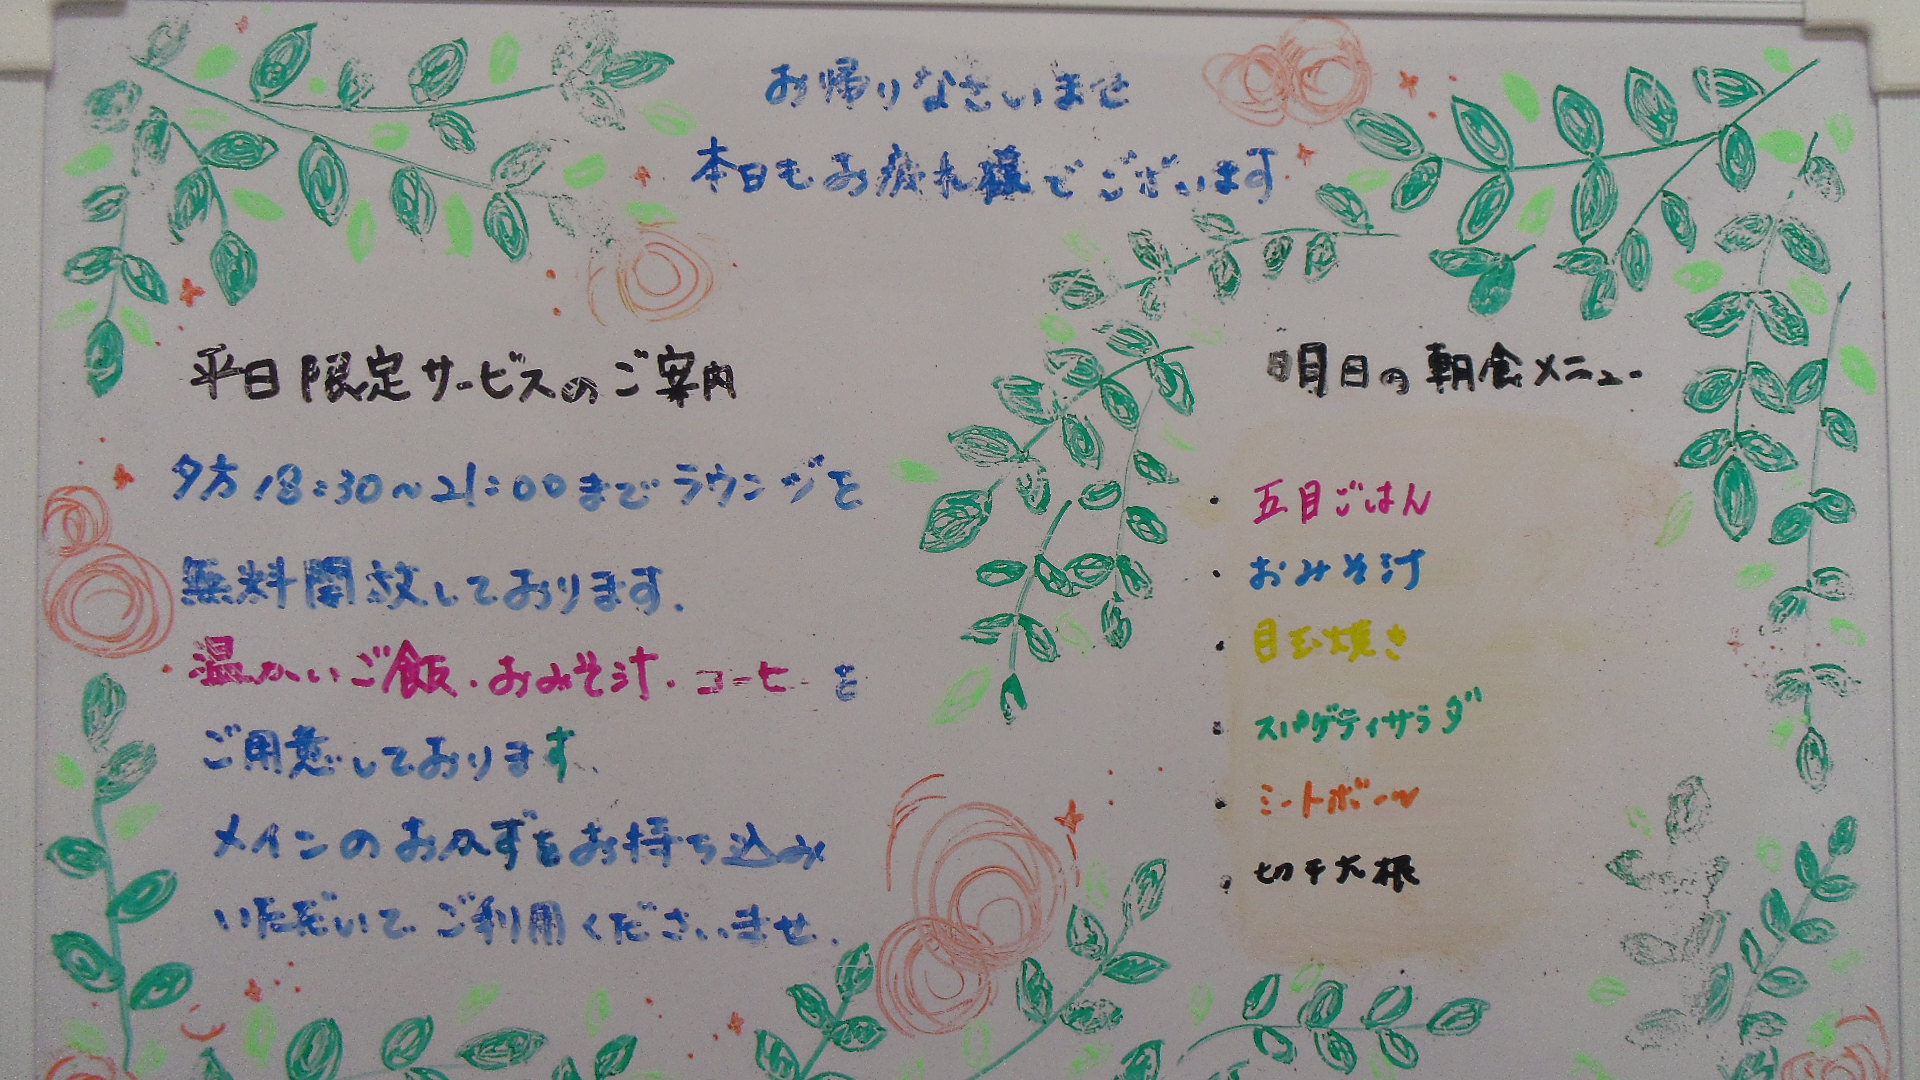 お帰りなさいませ
本日もお疲れ様でございます
平日限定サービスのご案内
夕方18:30～21:00までラウンジを
無料開放しております.
温かいご飯・おみそ汁・コーヒーを
ご用意しております.
メインのおかずをお持ち込み
いただいてご利用くださいませ.
明日の朝食メニュー
・五目ごはん
・おみそ汁
・目玉焼き
・スパゲティサラダ
・ミートボール
・切干大根